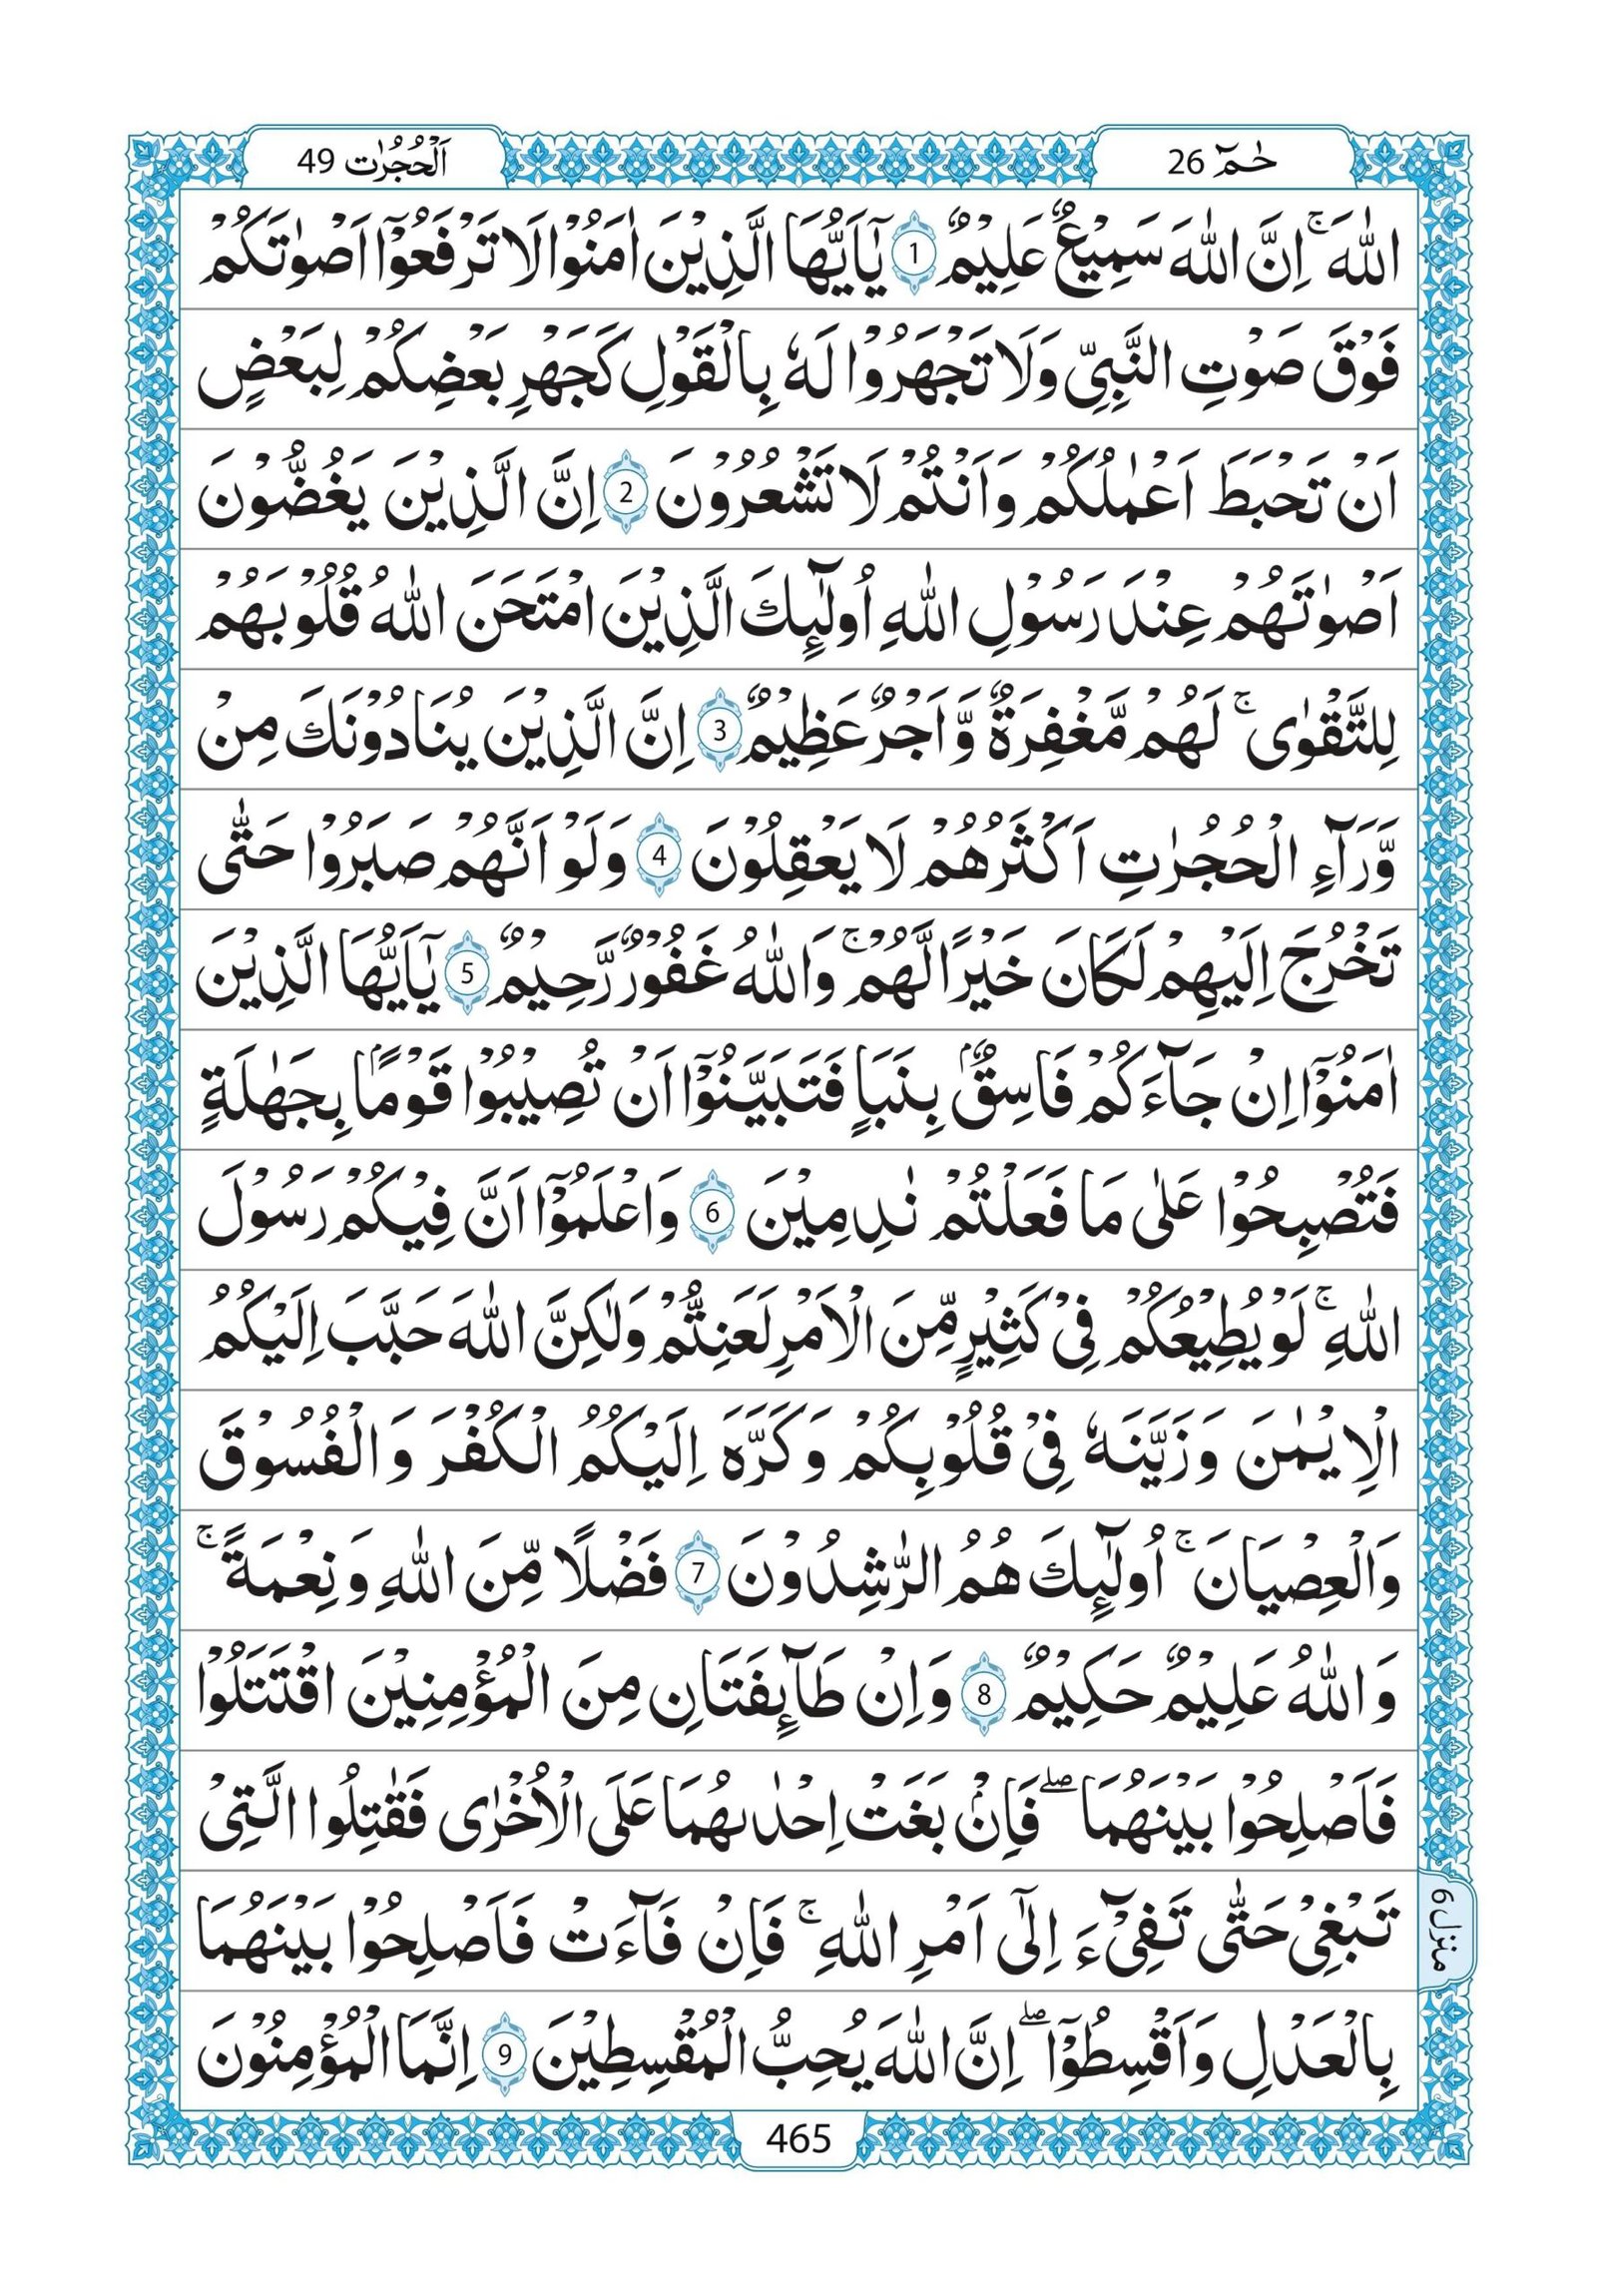 حٰمٓ 26
اَلْحُجُرٰت 49
اللّٰهَ ۚ اِنَّ اللّٰهَ سَمِيْعٌ عَلِيْمٌ 1 يٰۤاَيُّهَا الَّذِيْنَ اٰمَنُوْا لَا تَرْفَعُوْۤا اَصْوٰتَكُمْ
فَوْقَ صَوْتِ النَّبِيِّ وَلَا تَجْهَرُوْا لَهٗ بِالْقَوْلِ كَجَهْرِ بَعْضِكُمْ لِبَعْضٍ
اَنْ تَحْبَطَ اَعْمٰلُكُمْ وَاَنْتُمْ لَا تَشْعُرُوْنَ 2 اِنَّ الَّذِيْنَ يَغُضُّوْنَ
اَصْوٰتَهُمْ عِنْدَ رَسُوْلِ اللّٰهِ اُولٰٓئِكَ الَّذِيْنَ امْتَحَنَ اللّٰهُ قُلُوْبَهُمْ
لِلتَّقْوٰى ۚ لَهُمْ مَّغْفِرَةٌ وَّاَجْرٌ عَظِيْمٌ 3 اِنَّ الَّذِيْنَ يُنَادُوْنَكَ مِنْ
وَّرَآءِ الْحُجُرٰتِ اَكْثَرُهُمْ لَا يَعْقِلُوْنَ 4 وَلَوْ اَنَّهُمْ صَبَرُوْا حَتّٰى
تَخْرُجَ اِلَيْهِمْ لَكَانَ خَيْرًا لَّهُمْ ۚ وَاللّٰهُ غَفُوْرٌ رَّحِيْمٌ 5 يٰۤاَيُّهَا الَّذِيْنَ
اٰمَنُوْۤا اِنْ جَآءَكُمْ فَاسِقٌۢ بِنَبَاٍ فَتَبَيَّنُوْۤا اَنْ تُصِيْبُوْا قَوْمًۢا بِجَهٰلَةٍ
فَتُصْبِحُوْا عَلٰى مَا فَعَلْتُمْ نٰدِمِيْنَ 6 وَاعْلَمُوْۤا اَنَّ فِيْكُمْ رَسُوْلَ
اللّٰهِ ۚ لَوْ يُطِيْعُكُمْ فِيْ كَثِيْرٍ مِّنَ الْاَمْرِ لَعَنِتُّمْ وَلٰكِنَّ اللّٰهَ حَبَّبَ اِلَيْكُمُ
الْاِيْمٰنَ وَزَيَّنَهٗ فِيْ قُلُوْبِكُمْ وَكَرَّهَ اِلَيْكُمُ الْكُفْرَ وَالْفُسُوْقَ
وَالْعِصْيَانَ ۚ اُولٰٓئِكَ هُمُ الرّٰشِدُوْنَ 7 فَضْلًا مِّنَ اللّٰهِ وَنِعْمَةً ۚ
وَاللّٰهُ عَلِيْمٌ حَكِيْمٌ 8 وَاِنْ طَآئِفَتَانِ مِنَ الْمُؤْمِنِيْنَ اقْتَتَلُوْا
فَاَصْلِحُوْا بَيْنَهُمَا ۖ فَاِنْۢ بَغَتْ اِحْدٰىهُمَا عَلَى الْاُخْرٰى فَقٰتِلُوا الَّتِيْ
تَبْغِيْ حَتّٰى تَفِيْٓءَ اِلٰٓى اَمْرِ اللّٰهِ ۚ فَاِنْ فَآءَتْ فَاَصْلِحُوْا بَيْنَهُمَا
بِالْعَدْلِ وَاَقْسِطُوْۤا ۖ اِنَّ اللّٰهَ يُحِبُّ الْمُقْسِطِيْنَ 9 اِنَّمَا الْمُؤْمِنُوْنَ
منزل 6
465